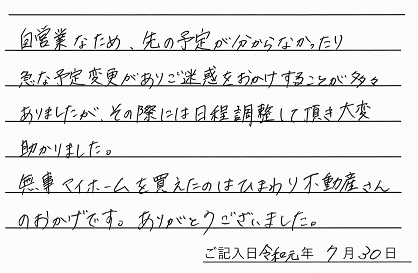 自営業なため、先の予定が分からなかったり
急な予定変更がありご迷惑をおかけすることが多々
ありましたが、その際には日程調整して頂き大変
助かりました。
無事マイホームを買えたのはひまわり不動産さん
のおかげです。ありがとうございました。
ご記入日令和元年 7月30日